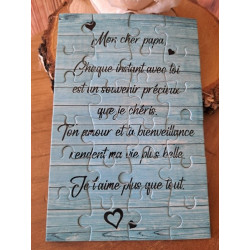 Mon cher papa,
Chaque instant avec toi
est un souvenir précieux
que je chéris.
Ton amour et ta bienveillance
rendent ma vie plus belle.
Je t'aime plus que tout.